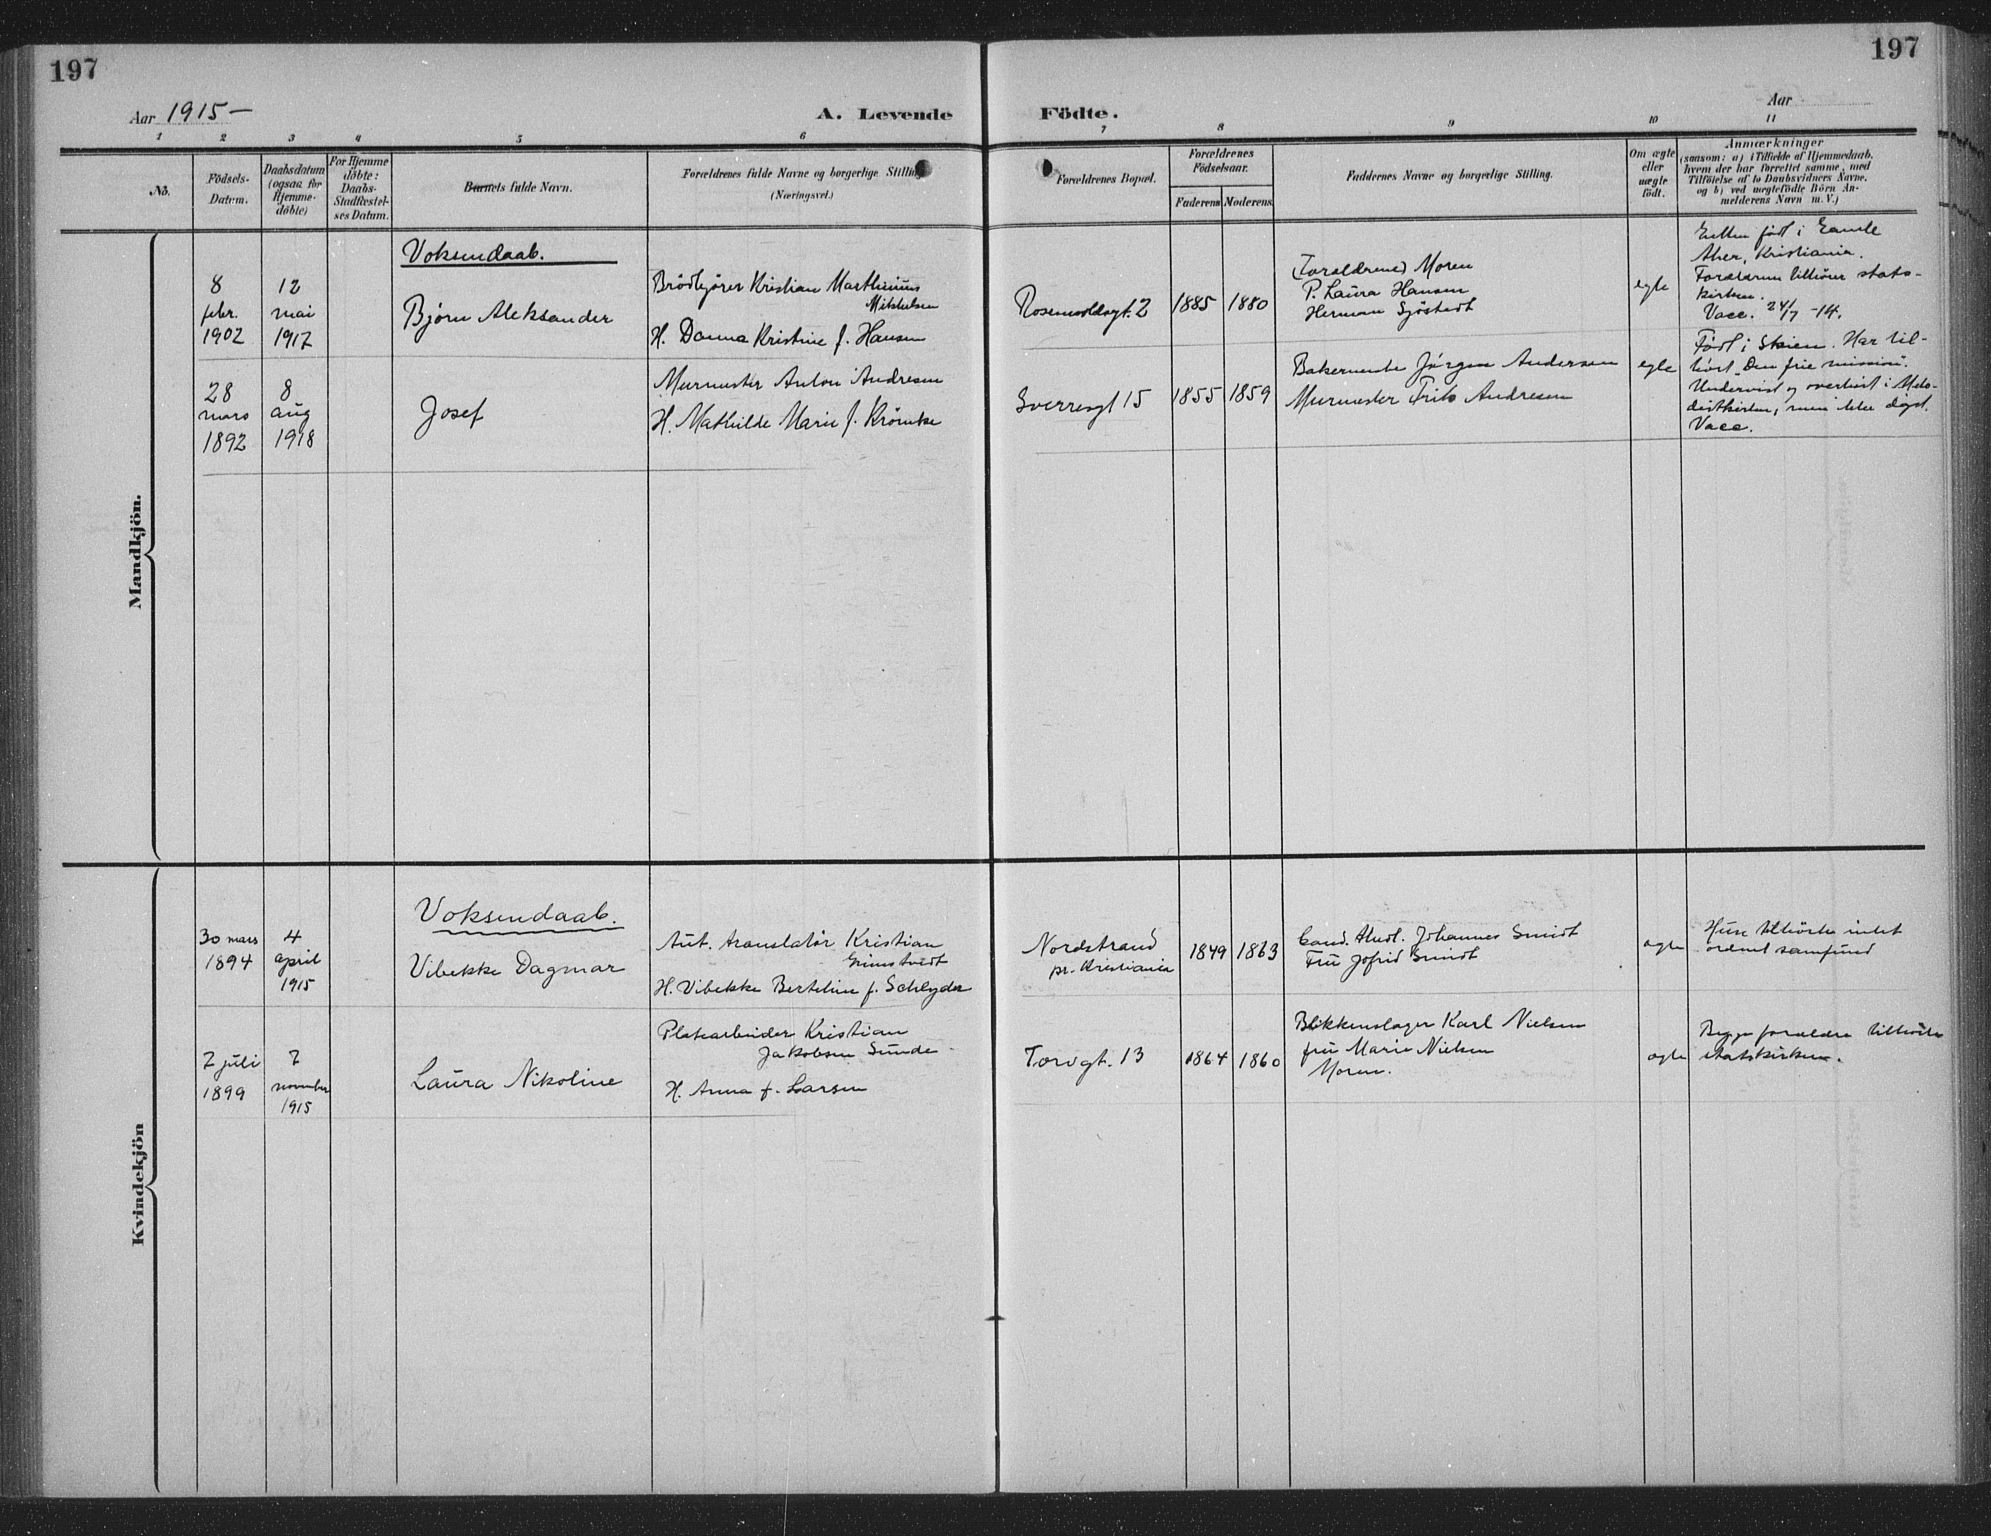 197
197
Aar 1915 —
A. Levende
Födte.
Aar
1 2 3 4 5 6 7 8 9 10 11
No.
Födsels-
Datum.
Daabsdatum
(ogsaa for
Hjemme-
døbte)
For Hjemme
døbte:
Daabs-
Stadfæstel-
ses Datum.
Barnets fulde Navn.
Forældrenes fulde Navne og borgerlige Stilling
(Næringsvei.)
Forældrenes Bopæl.
Forældrenes
Födselsaar.
Faderens
Moderens
Faddernes Navne og borgerlige Stilling.
Om ægte
eller
uægte
födt.
Anmærkninger
(saasom: a) i Tilfælde af Hjemmedaab,
hvem der har forrettet samme, med
Tilföielse af to Daabsvidners Navne,
og b) ved uægtefödte Börn An-
melderens Navn m. V.)
Mandkjön.
Voksendaab.
8
febr.
1902
12
mai
1917
Bjørn Aleksander
Brödkjører Kristian Marthinius
Mikkelsen
H. Danna Kristine f. Hansen
Rosenvoldsgt. 2
1885
1880
(Forældrene) Moren
P. Laura Hansen
Herman Sjöstedt
egte
født i Gamle
Aker, Kristiania.
Forældrene tilhører stats-
kirken.
Vacc. 24/7 -14.
28
mars
1892
8
aug
1918
Josef
Murmester Anton Andresen
H. Mathilde Marie f. Krömke
Sverresgt 15
1855
1859
Bakermester Jørgen Andersen
Murmester Frits Andresen
egte
Født i Skien. Har til-
hört "Den frie mission".
Undervist og overhört i Meto-
distkirken, men ikke döpt.
Vacc.
Kvindekjön
Voksendaab.
30 mars
1894
4
april
1915
Vibekke Dagmar
Aut. translatør Kristian
Grimstvedt
H. Vibekke Berteline f. Schlyder
Nordstrand
pr. Kristiania
1849
1863
Cand. theol. Johannes Smidt
Fru Jofrid Smidt
ægte
tilhörte intet
ordnet samfund
7 juli
1899
7
november
1915
Laura Nikoline
Platearbeider Kristian
Jakobsen Sunde
H. Anna f. Larsen
Torvgt. 13
1864
1860
Blikkenslager Karl Nielsen
fru Marie Nielsen
Moren.
ægte
Begge forældre tilhörte
statskirken.